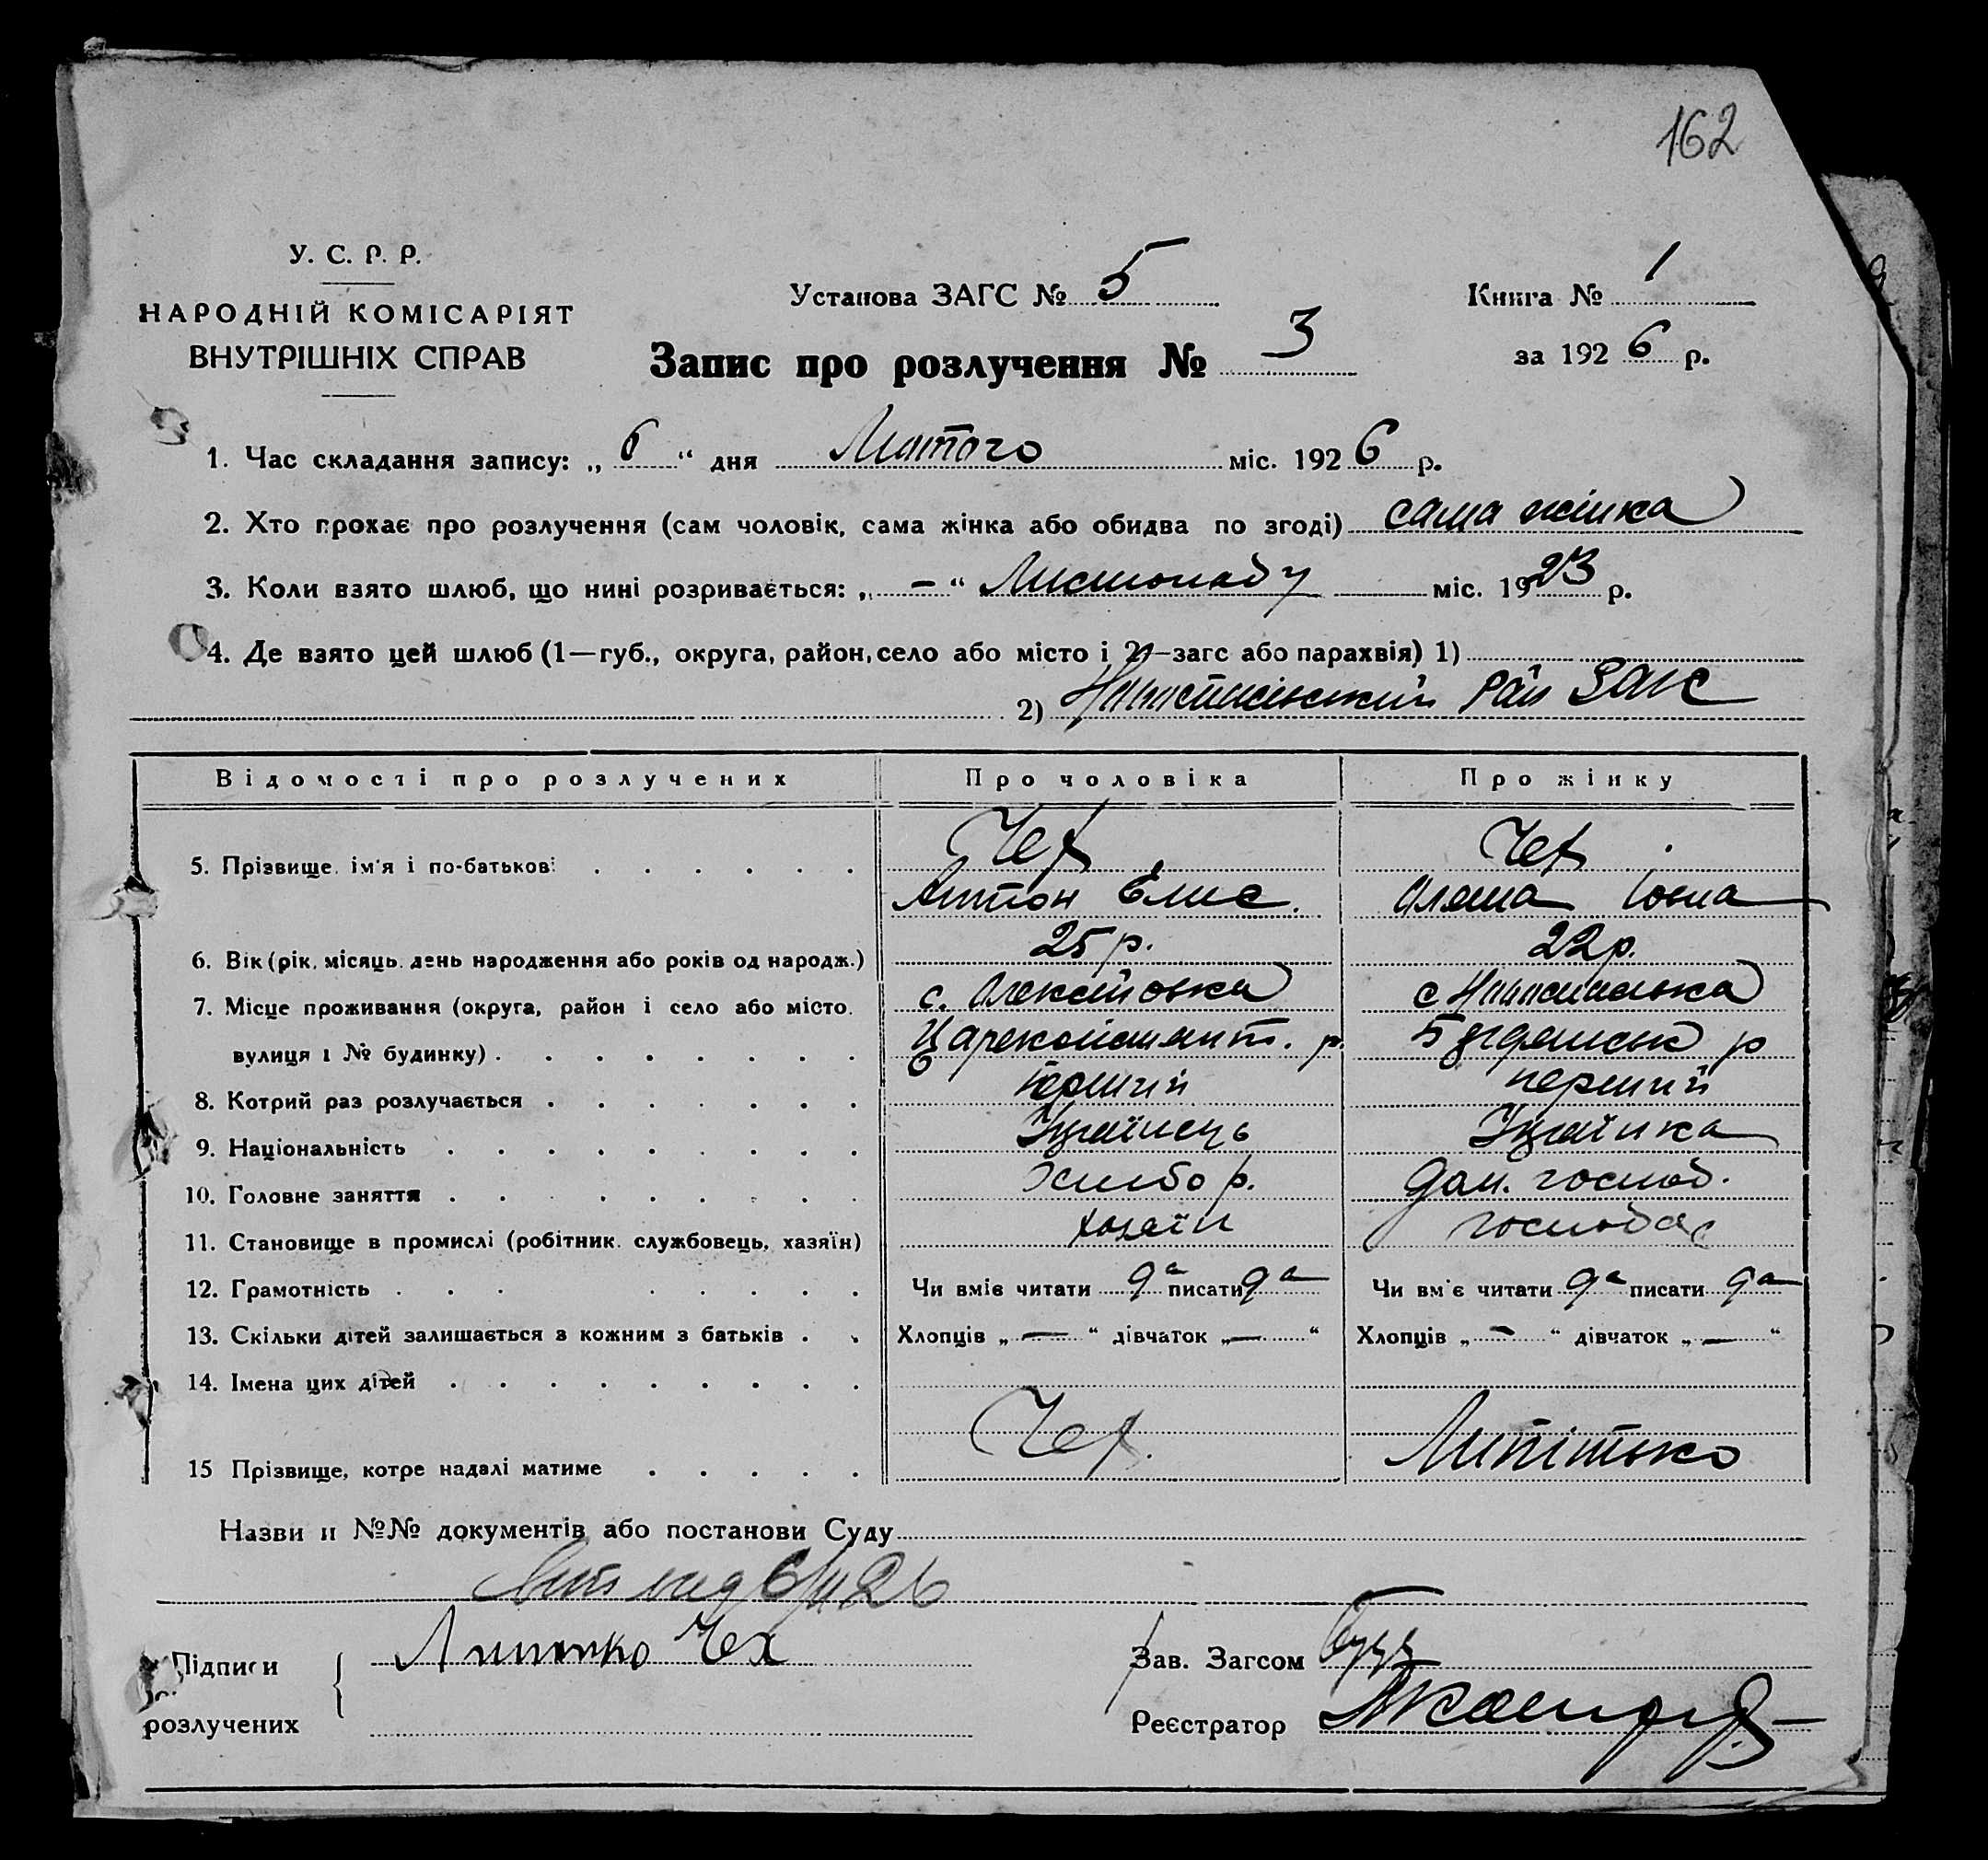 162
У. С. Р. Р.
НАРОДНІЙ КОМІСАРІЯТ
ВНУТРІШНІХ СПРАВ
Установа ЗАГС № 5
Книга № 1
Запис про розлучення № 3
за 1926 р.
1. Час складання запису: „ 6 “ дня Лютого міс. 1926 р.
2. Хто прохає про розлучення (сам чоловік, сама жінка або обидва по згоді) сама жінка
3. Коли взято шлюб, що нині розривається: „ — “ Листопаду міс. 1923 р.
4. Де взято цей шлюб (1—губ., округа, район, село або місто і 2—загс або парахвія) 1)
2) Рай ЗАГС
Відомості про розлучених Про чоловіка Про жінку
Чех Чех
5. Прізвище, ім'я і по-батькові
Антон Єлис.
25 р. 22 р.
6. Вік (рік, місяць, день народження або років од народж.)
7. Місце проживання (округа, район і село або місто, с. Олексіївка с
вулиця і № будинку) Царекойстянт. р.
8. Котрий раз розлучається перший перший
9. Національність Українець Українка
10. Головне заняття Хлібор. Дом. господ.
11. Становище в промислі (робітник, службовець, хазяїн) хозяїн господар
12. Грамотність Чи вміє читати да писати да Чи вміє читати да писати да
13. Скільки дітей залишається з кожним з батьків Хлопців „ — “ дівчаток „ — “ Хлопців „ — “ дівчаток „ — “
14. Імена цих дітей
15 Прізвище, котре надалі матиме Чех. Липітько
Назви и №№ документів або постанови Суду
6/II 26
Підписи Чех Зав. Загсом
розлучених Реєстратор